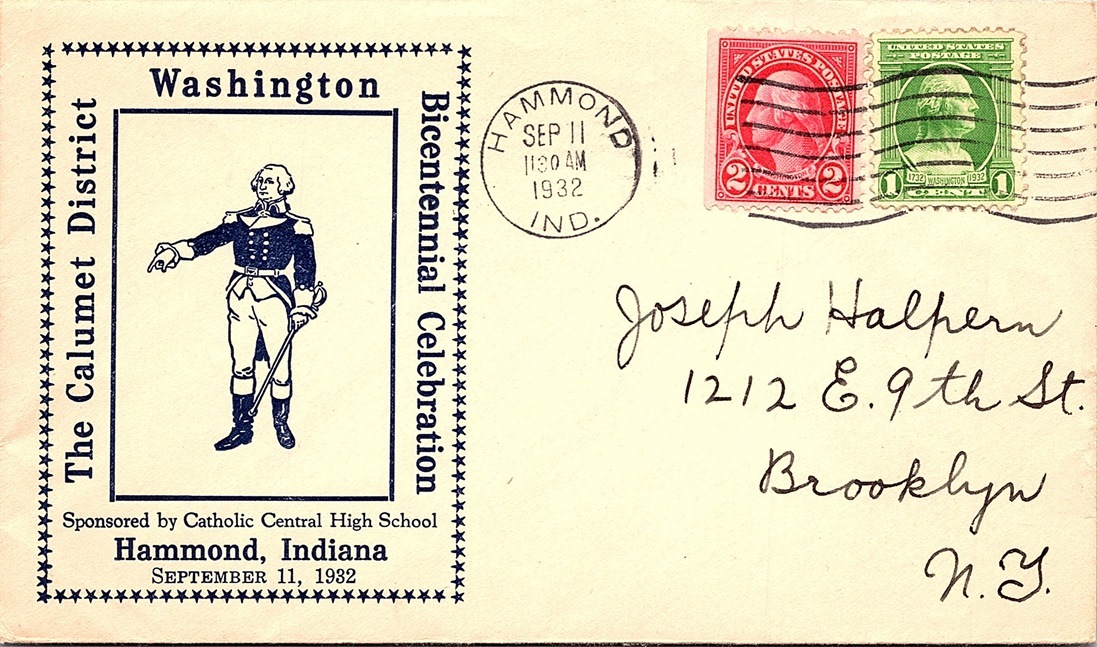 Washington
The Calumet District
Bicentennial Celebration
Sponsored by Catholic Central High School
Hammond, Indiana
SEPTEMBER 11, 1932
HAMMOND
SEP 11
1130 AM
1932
IND.
UNITED STATES POSTAGE
WASHINGTON
2 CENTS 2
UNITED STATES
POSTAGE
1732 WASHINGTON 1932
1 CENT 1
Joseph Halpern
1212 E. 9th St.
Brooklyn
N.Y.